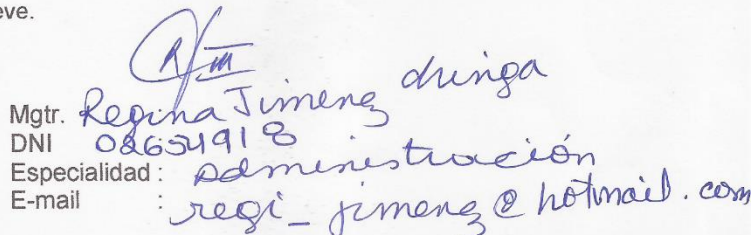 eve.
Mgtr. Regina Jimenez Chinga
DNI 02654918
Especialidad : Administración
E-mail : regi_jimenez@hotmail.com